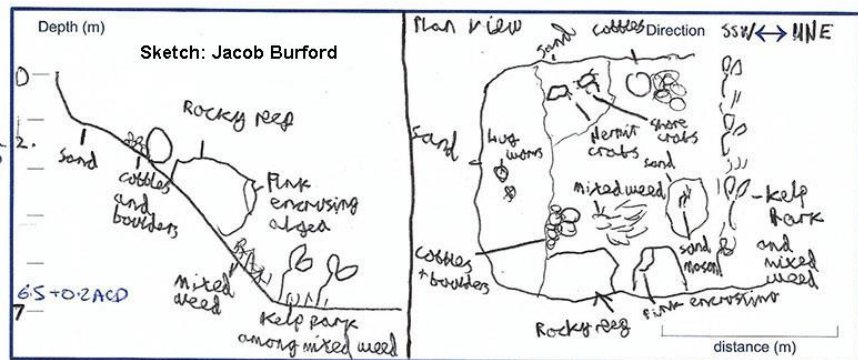 Depth (m)
Sketch: Jacob Burford
0
Rocky reef
2.
sand
cobbles
and
boulders
Pink
encrusing
algea
mixed
weed
6.5 + 0.2 ACD
7
Kelp park
among mixed weed
Plan view
sand
cobbles
Direction
SSW ↔ NNE
sand
Lug
worms
Hermit
crabs
shore
crabs
sand
mixed weed
Kelp
Park
and
mixed
weed
sand
mason
cobbles
+ boulders
Rocky reef
Pink encrusting
distance (m)